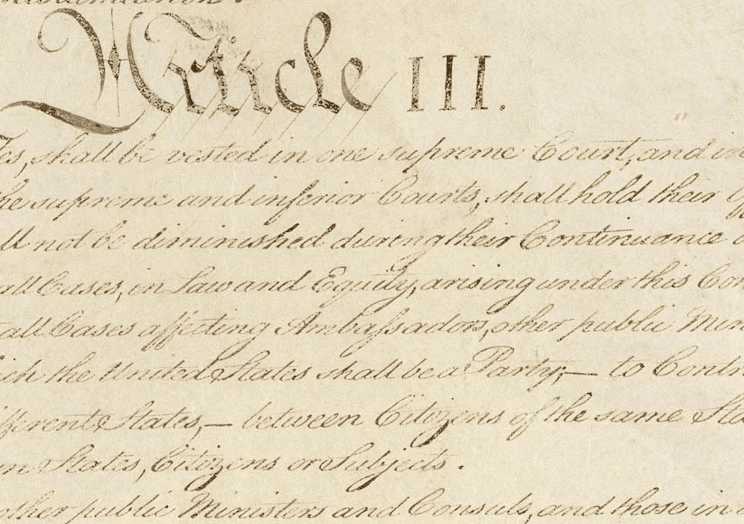 Article III.
shall be vested in one supreme Court, and in
the supreme and inferior Courts, shall hold their
not be diminished during their Continuance
all Cases, in Law and Equity, arising under this
all Cases affecting Ambassadors, other public
the United States shall be a Party;— to
States,— between Citizens of the same
States, Citizens or Subjects.
other public Ministers and Consuls, and those in